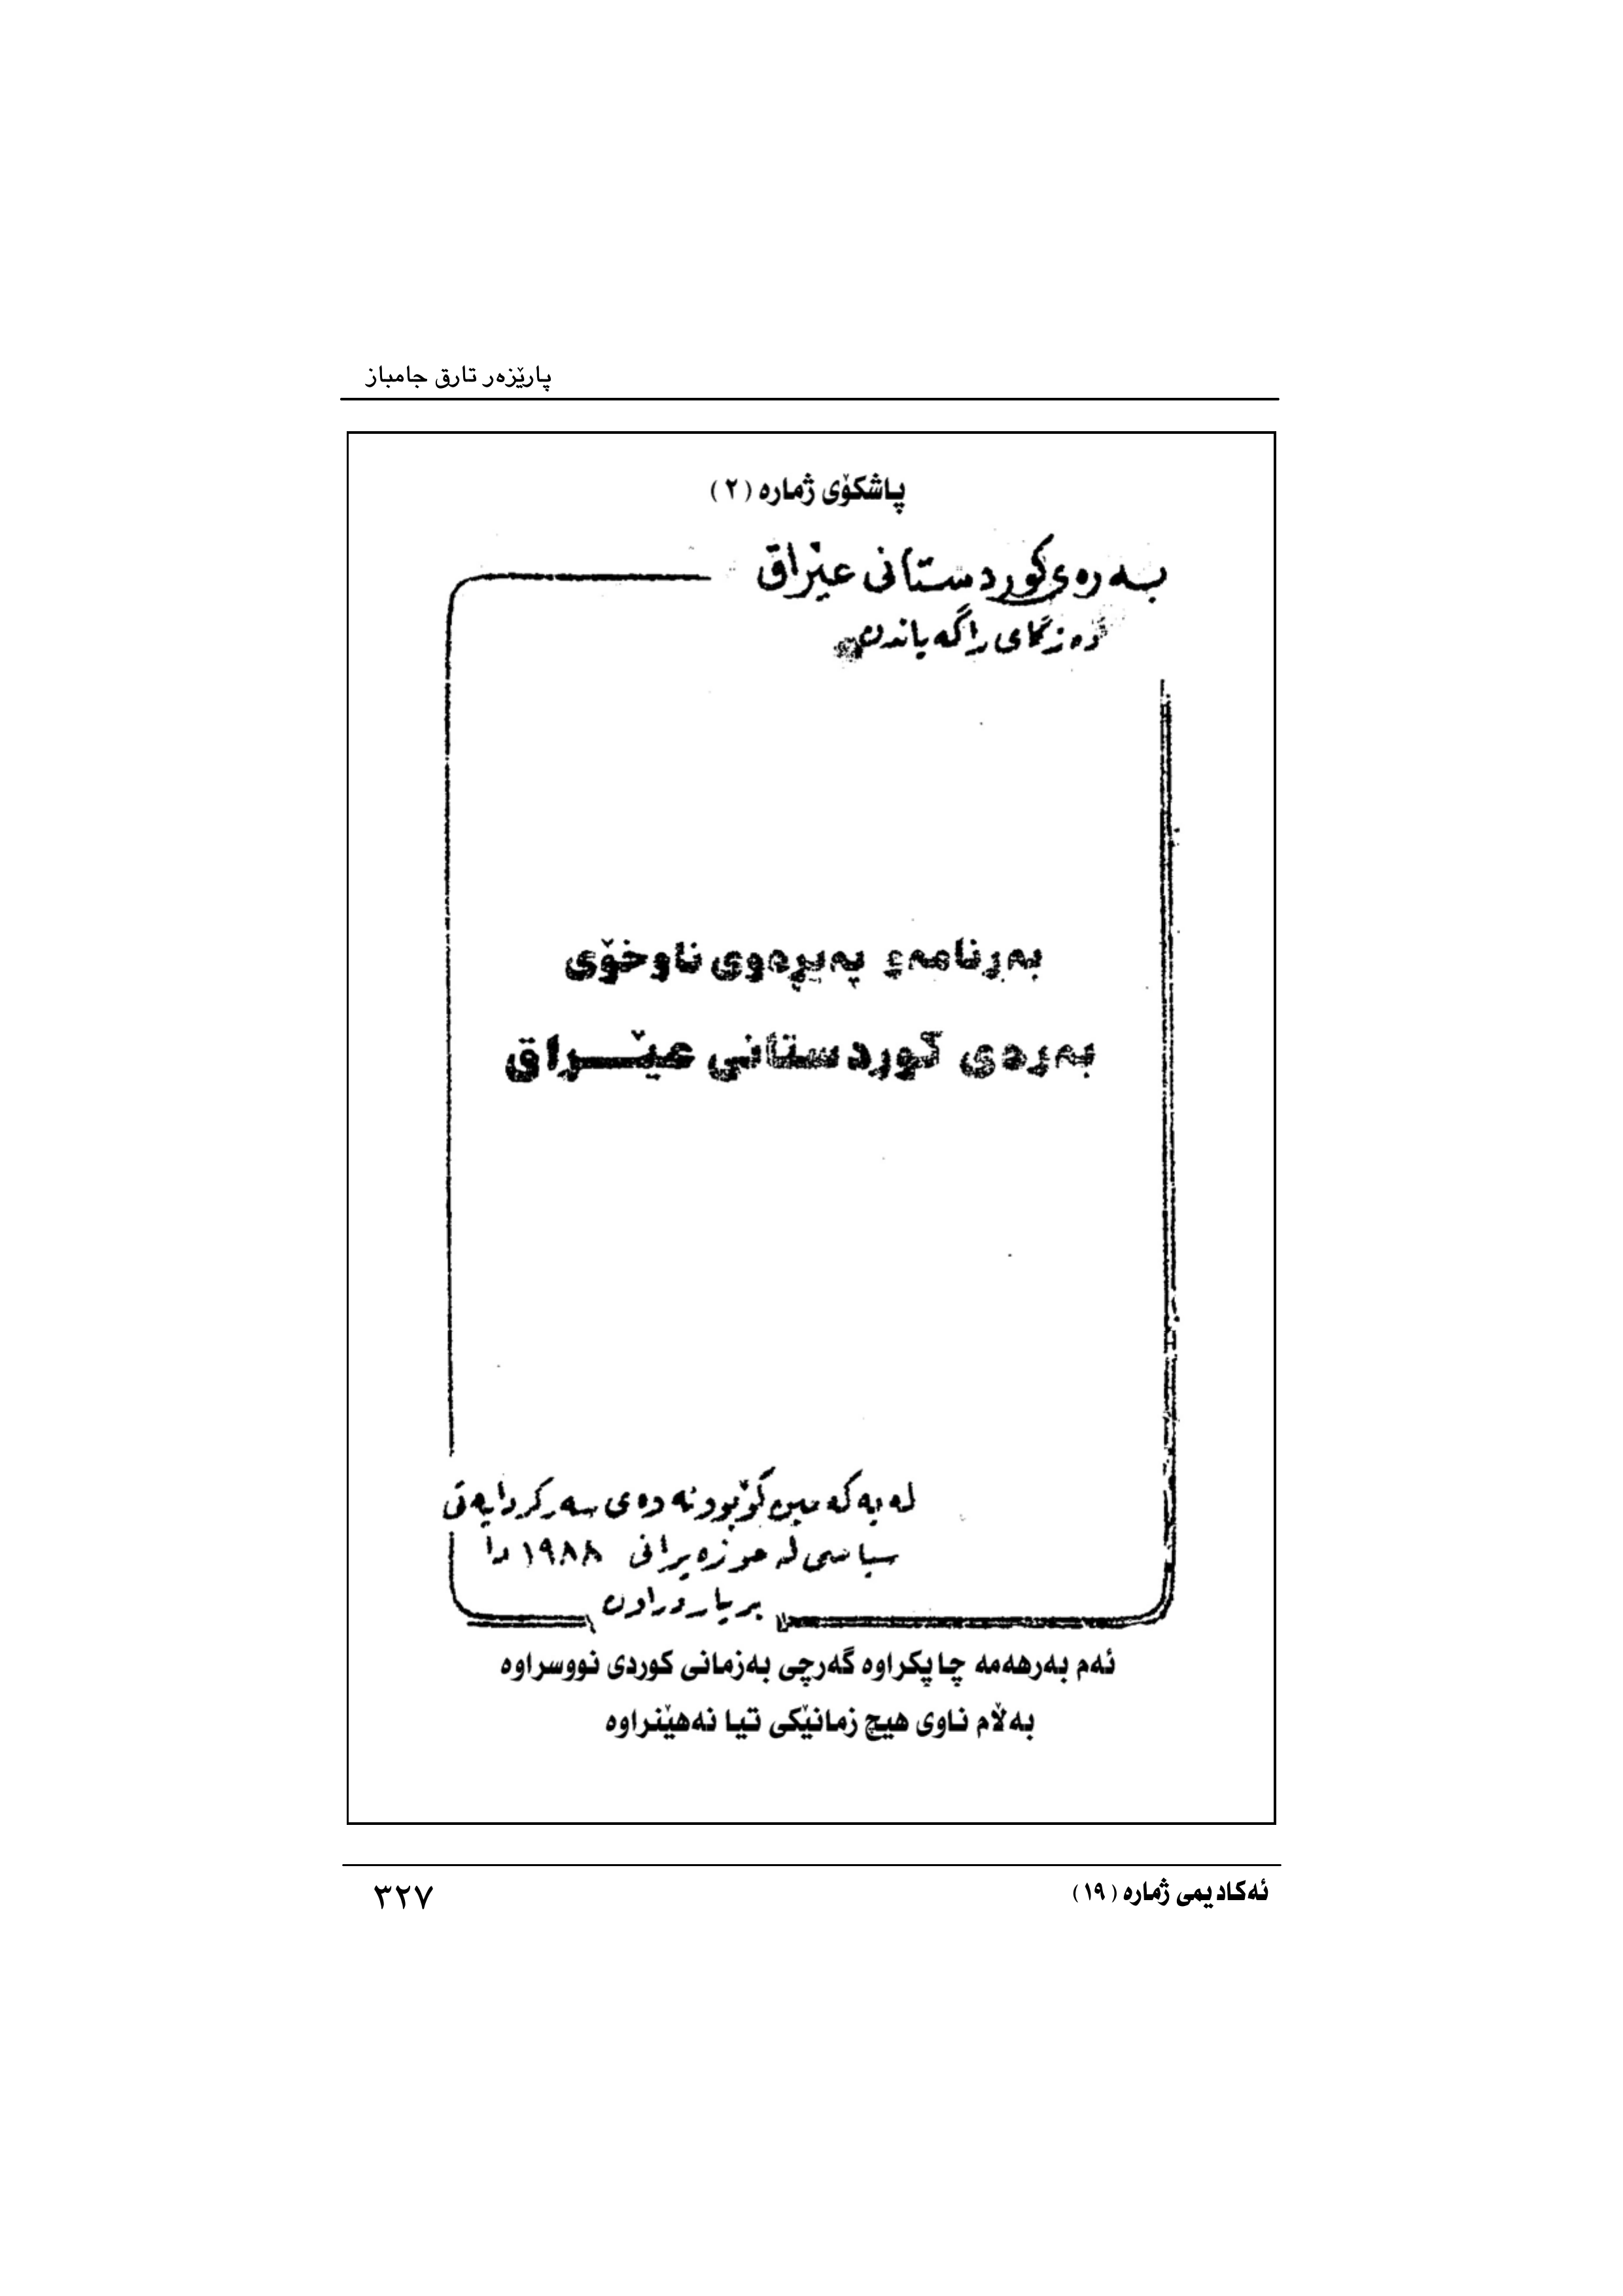 پارێزەر تارق جامباز
پاشکۆی ژمارە (٢)
بەرەی کوردستانی عێراق
دەزگای راگەیاندن
بەرنامەو پەیڕەوی ناوخۆی
بەرەی کوردستانی عێـــراق
لە یەکەمین کۆبوونەوەی سەرکردایەتی
سیاسی لە حوزەیرانی ١٩٨٨ دا
بریار دراون
ئەم بەرهەمە چاپکراوە گەرچی بەزمانی کوردی نووسراوە
بەڵام ناوی هیچ زمانێکی تیا نەهێنراوە
ئەکادیمی ژمارە (١٩)
٣٢٧